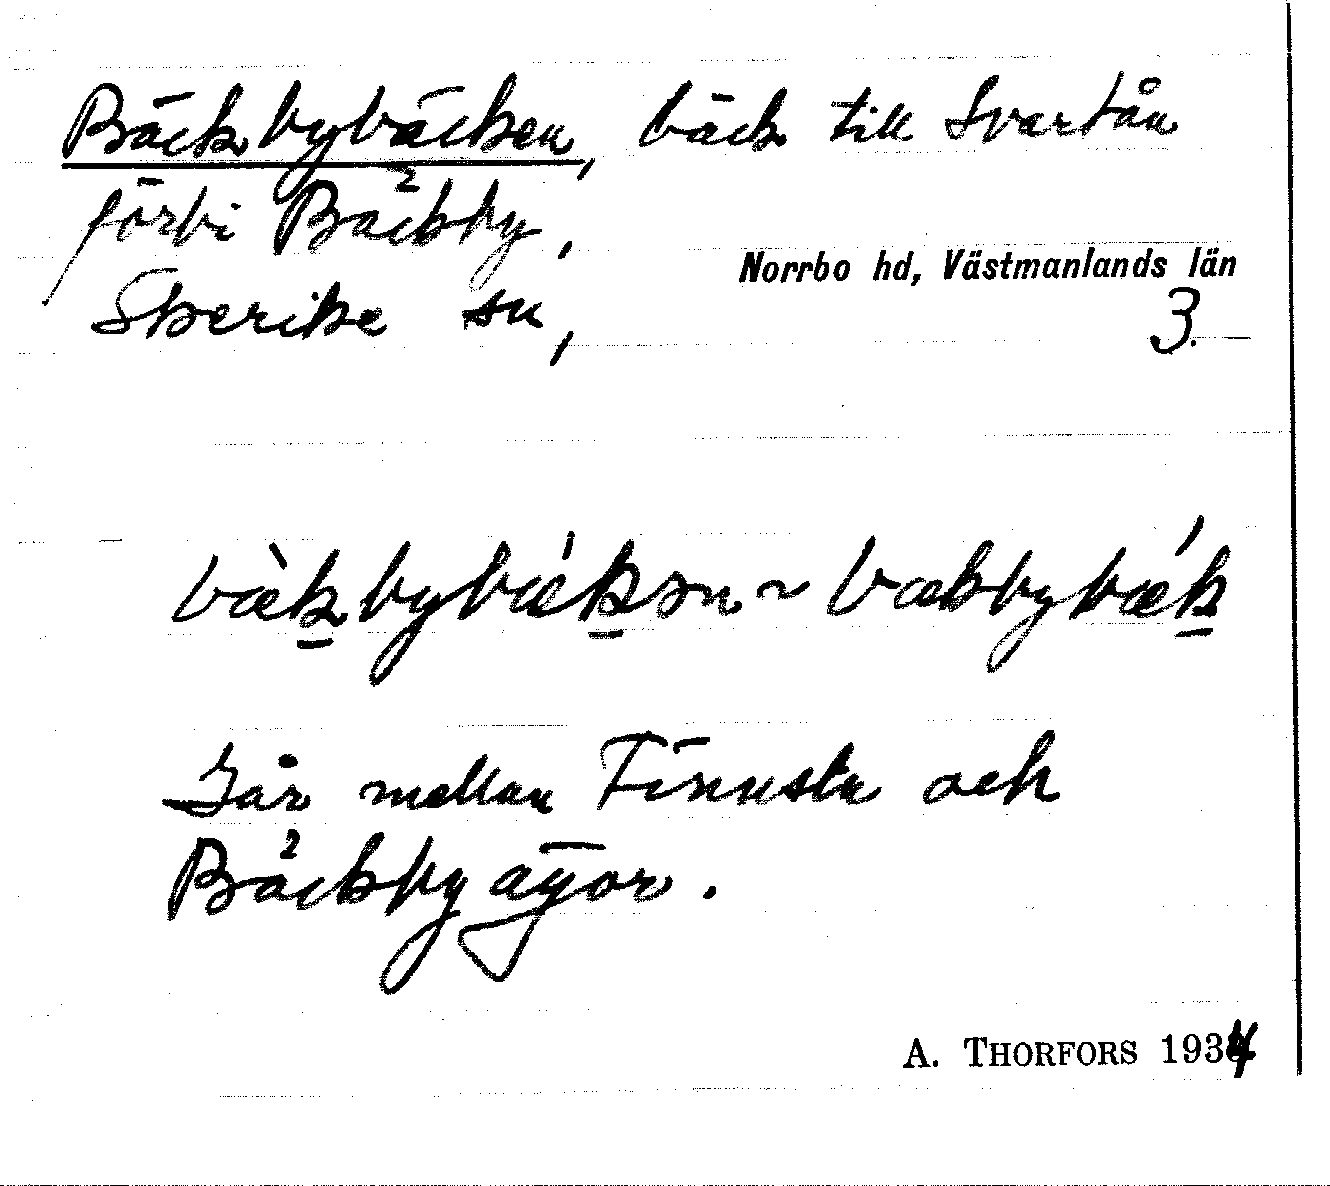 Bäckbybäcken, bäck till Svartån
förbi Bäckby,
Norrbo hd, Västmanlands län
Skerike sn,
3.
bæ̀kbybǽkən ~ bækbybǽk
Går mellan Finnsta och
Bäckby ägor.
A. THORFORS 1934